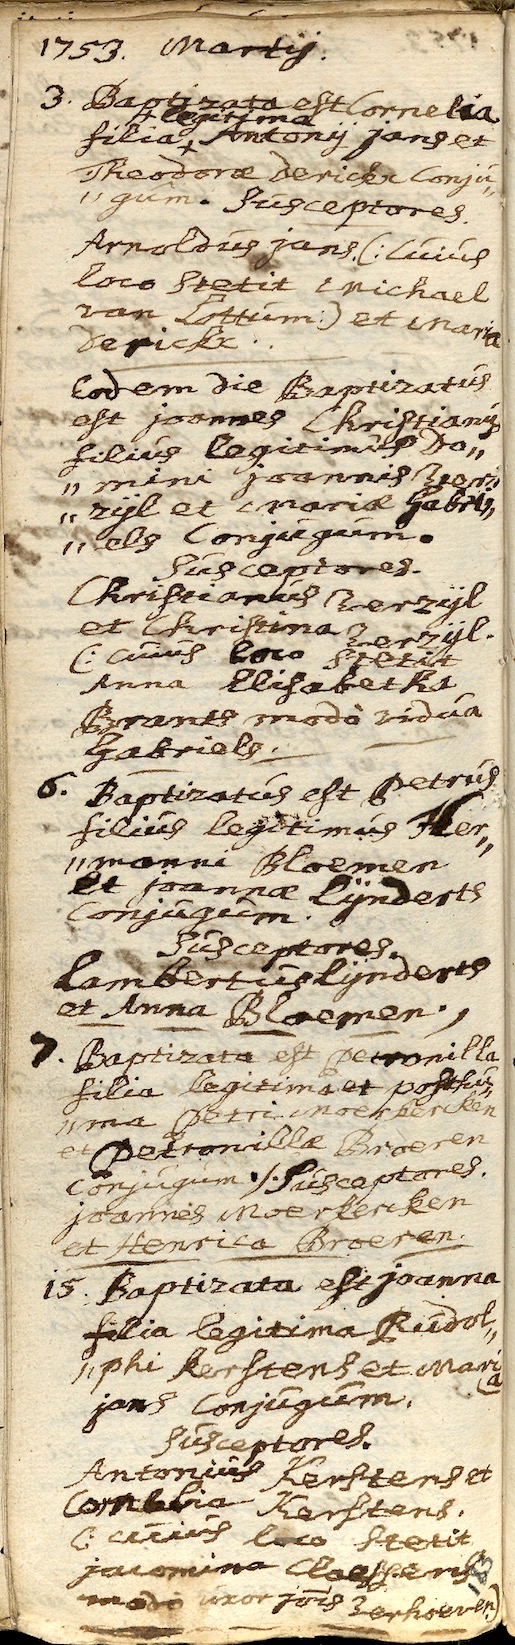 1753. Martij.
3. Baptizata est Cornelia
+ legitima
filia + Antonij Jans et
Theodoræ Derickx Conju„
„gum. Susceptores
Arnoldus jans (: Cuius
loco Stetit Michael
van Lottum:) et Maria
Derickx.
Eodem die Baptizatus
est joannes Christianus
filius legitimus Do„
„mini joannis Verz
„zijl et Mariæ Gabri„
„els Conjugum.
Susceptores.
Christianus Verzijl
et Christina Verzijl.
(: cuius loco Stetit
Anna Elisabetha
Brants modo vidua
Gabriels.
6. Baptizatus est Petrus
filius legitimus Her„
„manni Bloemen
et joannæ Lijnderts
Conjugum.
Susceptores.
Lambertus Lijnderts
et Anna Bloemen.
7. Baptizata est Petronilla
filia legitima et posthu„
„ma Petri Moerkercken
et Petronillæ Broeren
Conjugum /: Susceptores.
joannes Moerkercken
et Henrica Broeren.
15. Baptizata est joanna
filia legitima Rudol„
„phi Kerstens et Maria
jans Conjugum.
Susceptores.
Antonius Kerstens et
Cornelia Kerstens.
(: cuius loco Stetit
jacomina Claessens
modo uxor jois Verhoeven)
183